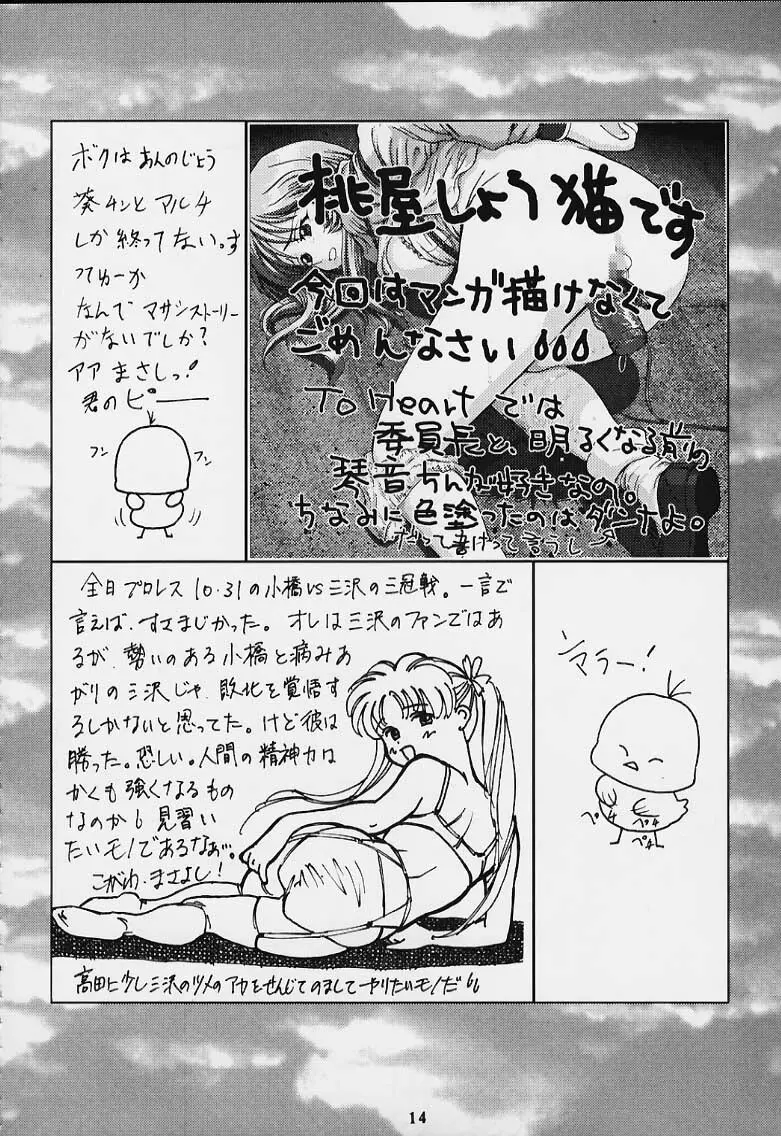 桃屋しょう猫です
今回はマンガ描けなくて
ごめんなさい
To Heartでは
委員長と、明るくなる前の
琴音ちんが好きなの。
ちなみに色塗ったのはダンナよ。
だって書けって言うし
ボクはあんのじょう
葵チンとマルチ
しか終ってない。す
つてゆーか
なんでマサシストーリー
がないでしか?
アア まさしっ!
君のピ――
フン
フン
全日プロレス 10.31の小橋vs三沢の三冠戦。一言で
言えば、すさまじかった。オレは三沢のファンではあ
るが、勢いのある小橋と病みあ
がりの三沢じゃ、敗北を覚悟す
るしかないと思ってた。けど彼は
勝った。恐しい。人間の精神力は
かくも強くなるもの
なのか。見習い
たいモノであるなぁ…。
こがわ・まさよし!
高田に少し三沢のツメのアカをせんじてのましてやりたいモノだ
マラー!
ペチ
ペチ
ペチ
14